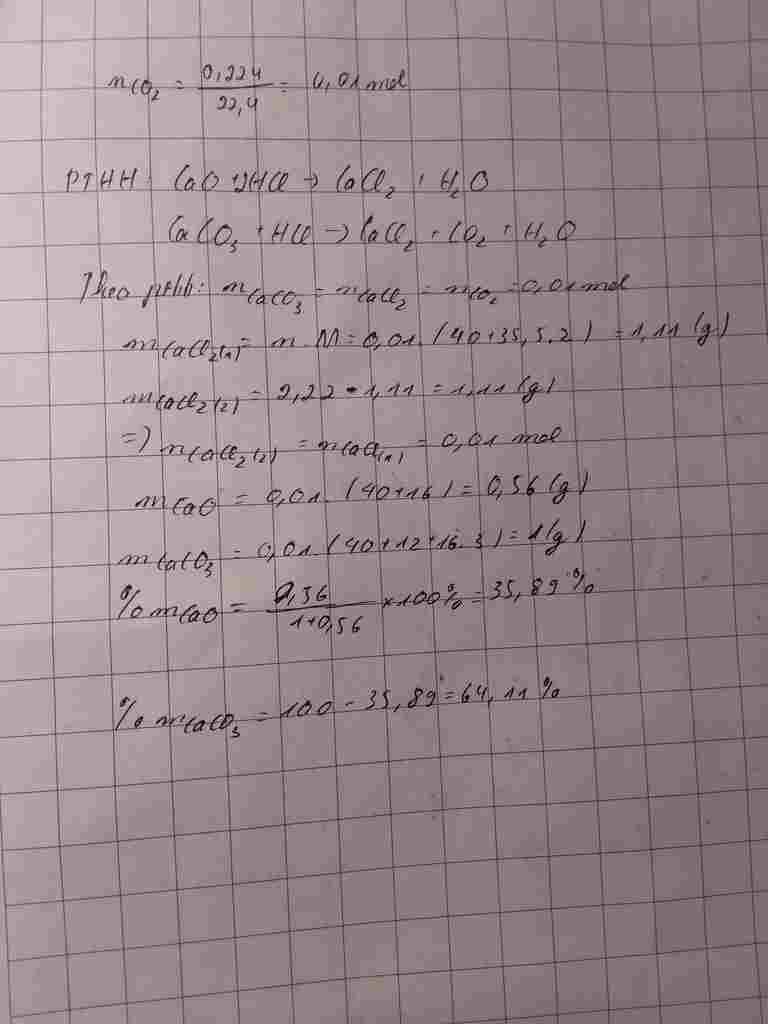 nCO₂ = 0,224 / 22,4 = 0,01 mol
PTHH: CaO + 2HCl → CaCl₂ + H₂O
CaCO₃ + HCl → CaCl₂ + CO₂ + H₂O
Theo pthh: nCaCO₃ = nCaCl₂ = nCO₂ = 0,01 mol
mCaCl₂(1) = n. M = 0,01. (40+35,5.2) = 1,11 (g)
mCaCl₂(2) = 2,22 - 1,11 = 1,11 (g)
=> nCaCl₂(2) = nCaCl(1) = 0,01 mol
mCaO = 0,01. (40+16) = 0,56 (g)
mCaCO₃ = 0,01. (40+12+16.3) = 1(g)
% mCaO = 0,56 / 1+0,56 ×100% = 35,89 %
% mCaCO₃ = 100 - 35,89 = 64,11 %